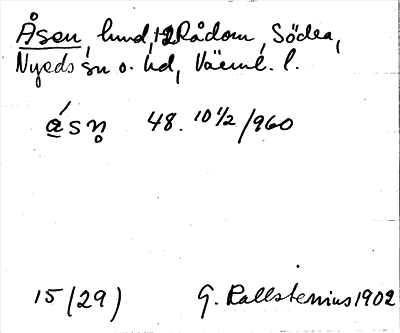 Åsen, hmd, 12 Rådom, Södra,
Nyeds sn o. hd, Värml. l.
ásn̥ 48. 10 1/2/960
15 (29) G. Kallstenius 1902